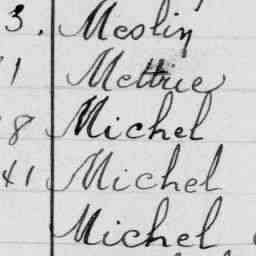 3. Meslin
1 Mettrie
8 Michel
41 Michel
Michel